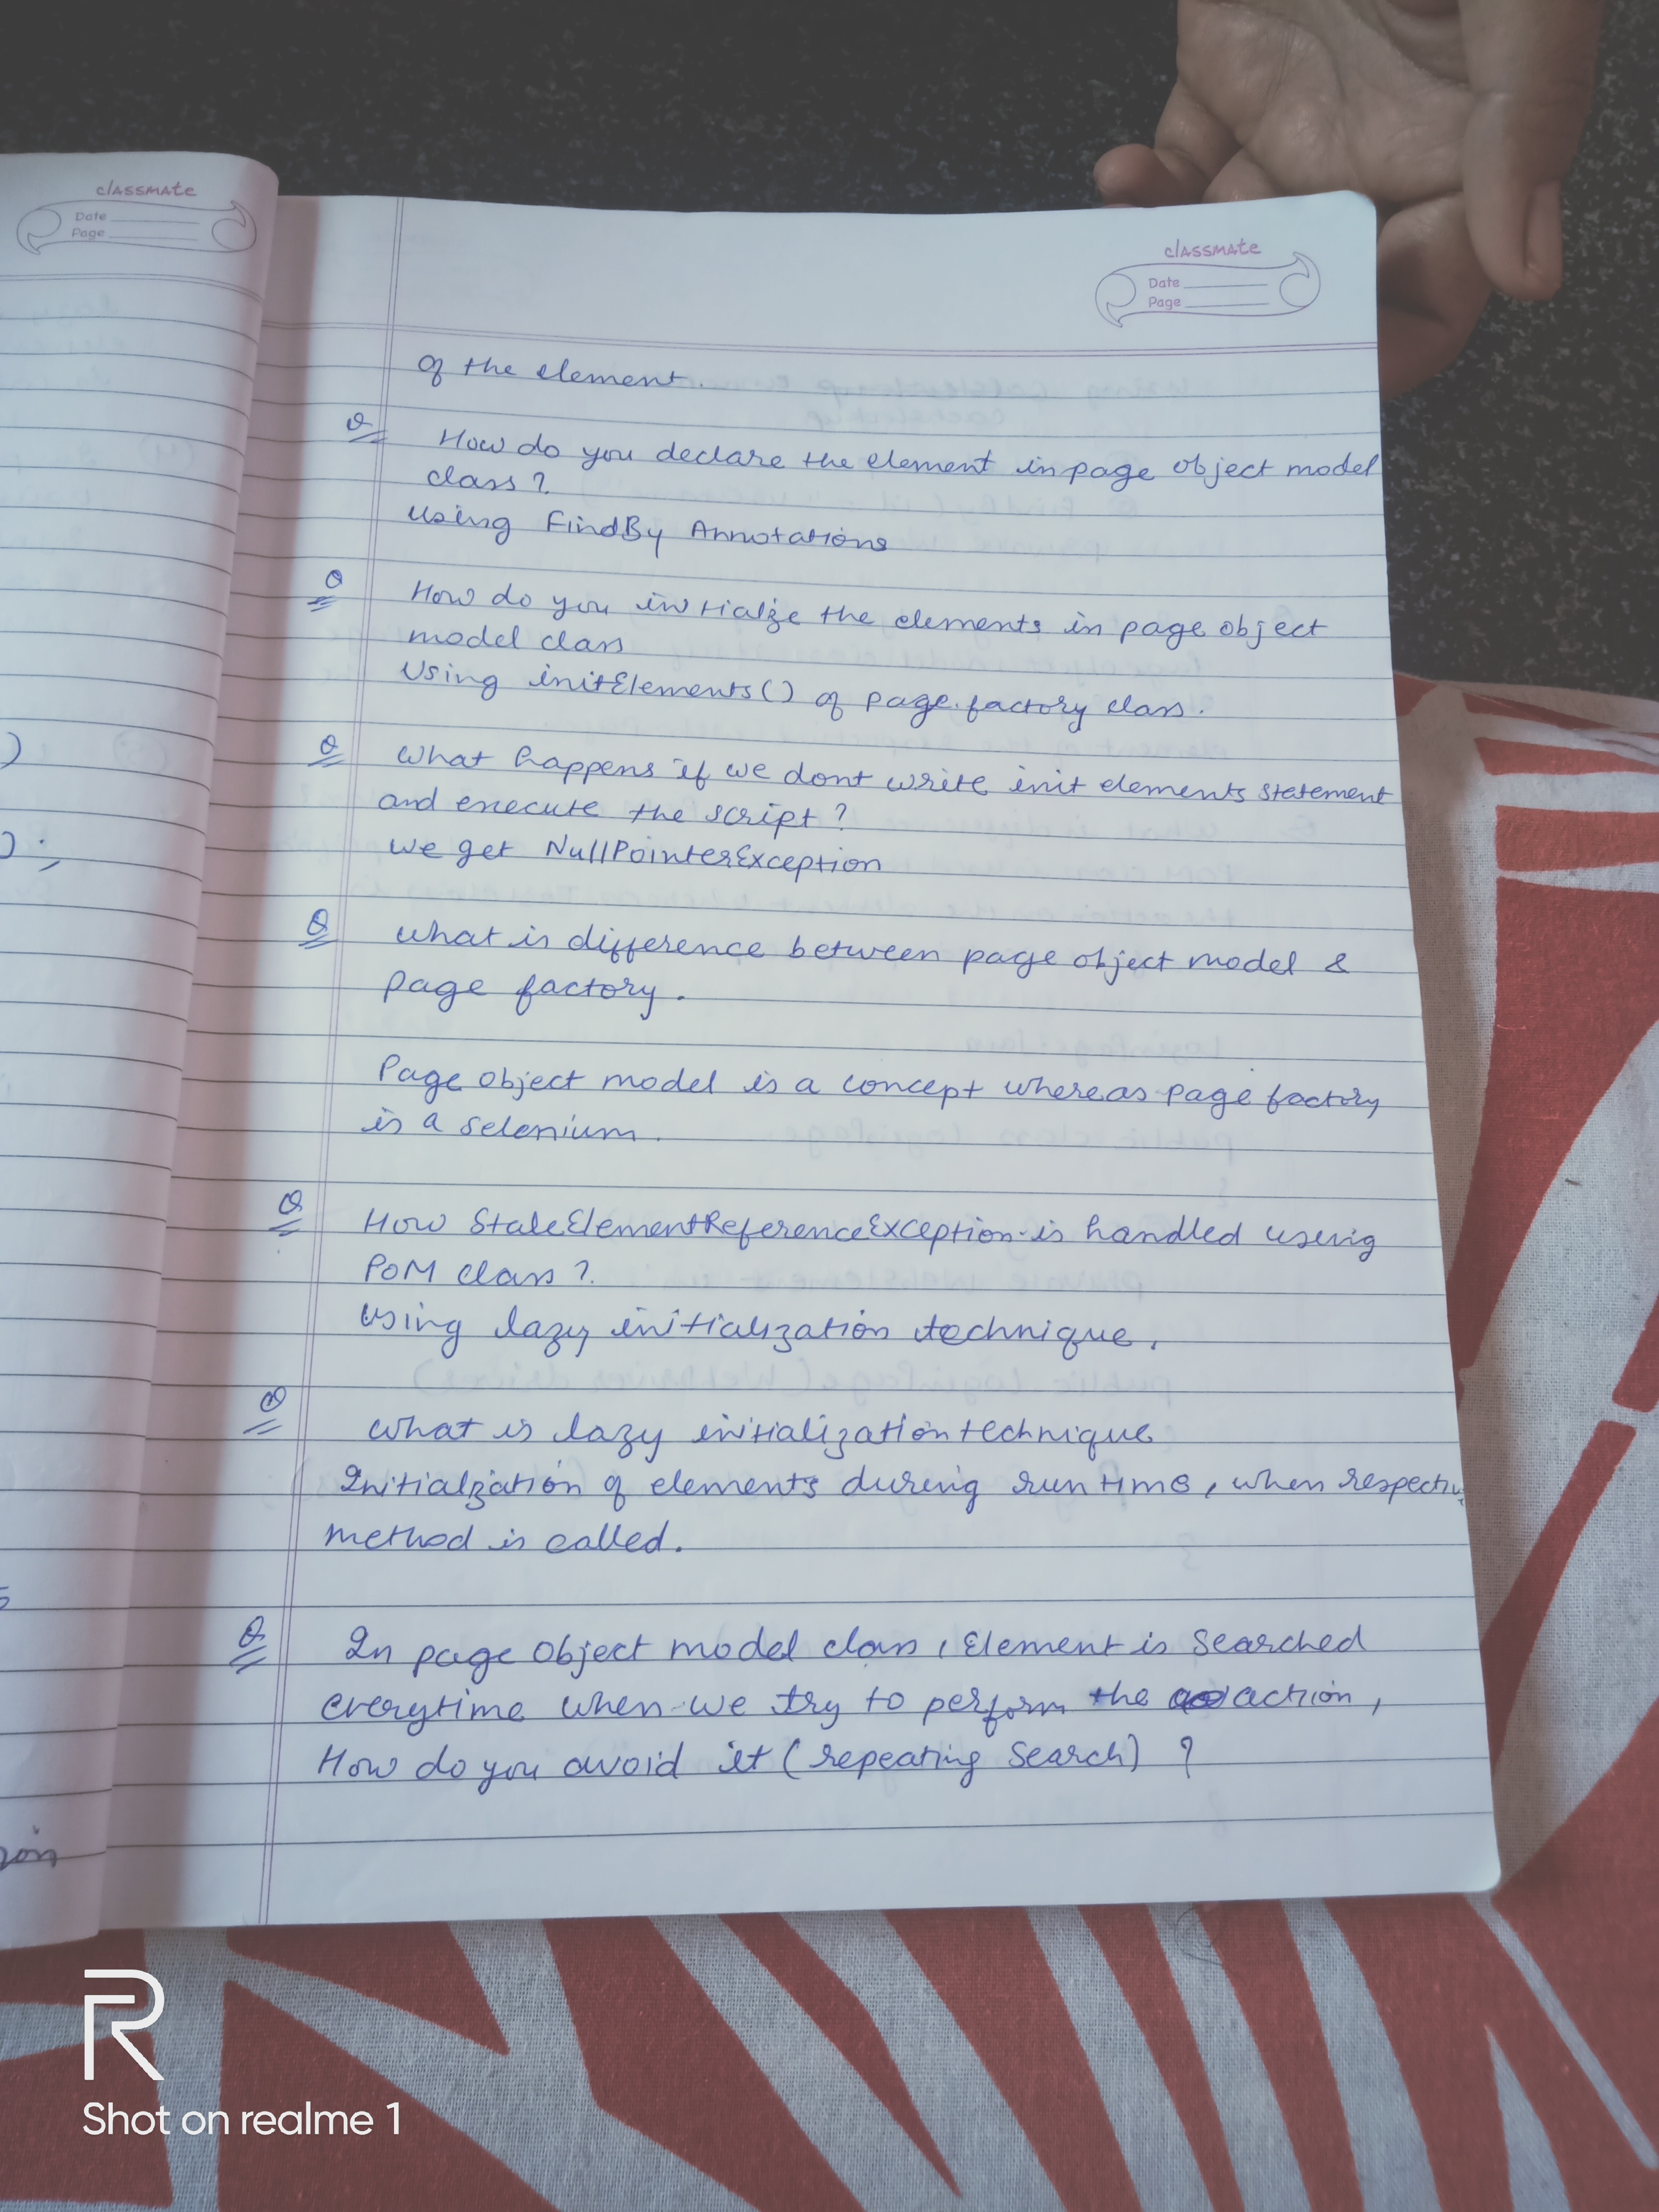 classmate
Date
Page
classmate
Date
Page
of the element.
Q How do you declare the element in page object model
class ?
using FindBy Annotations
Q How do you initialze the elements in page object
model class
Using initElements() of page.factory class.
Q What happens if we dont write init elements statement
and execute the script ?
we get NullPointerException
Q what is difference between page object model &
page factory.
Page object model is a concept whereas page factory
is a selenium.
Q How StaleElementReferenceException is handled using
POM class ?
using lazy initialization technique.
Q what is lazy initialization technique
Initialzation of elements during run time, when respective
method is called.
Q In page object model class, Element is searched
everytime when we try to perform the action,
How do you avoid it (repeating search) ?
)
);
5
R
Shot on realme 1